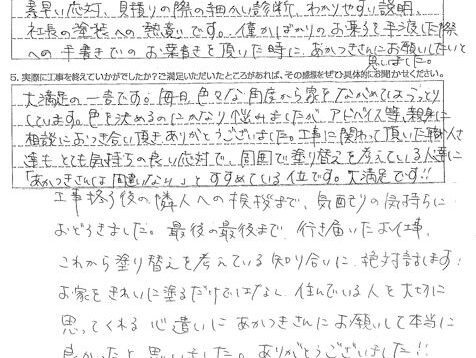 素早い応対、見積りの際の細かい診断、わかりやすい説明、
社長の塗装への熱意です。僅かばかりのお菓子を手渡した際
への手書きでのお葉書きを頂いた時に、あかつきさんにお願いしたいと
思いました。
5. 実際に工事を終えていかがでしたか?ご満足いただいたところがあれば、その感想をぜひ具体的にお聞かせください。
大満足の一言です。毎日、色々な角度から家をながめてはうっとり
しています。色を決めるのにかなり悩みましたが、アドバイス等、親身に
相談におつき合い頂きありがとうございました。工事に関わって頂いた職人さ
達も、とても気持ちの良い応対で、周囲で塗り替えを考えている人達に
「あかつきさんは間違いない」とすすめている位です。大満足です!!
工事終了後の隣人への挨拶まで、気配りの気持ちに
おどろきました。最後の最後まで、行き届いたお仕事、
これから塗り替えを考えている知り合いに、絶対話します!
お家をきれいに塗るだけではなく、住んでいる人を大切に
思ってくれる心遣いに、あかつきさんにお願いして本当に
良かったと思いました。ありがとうございました!!